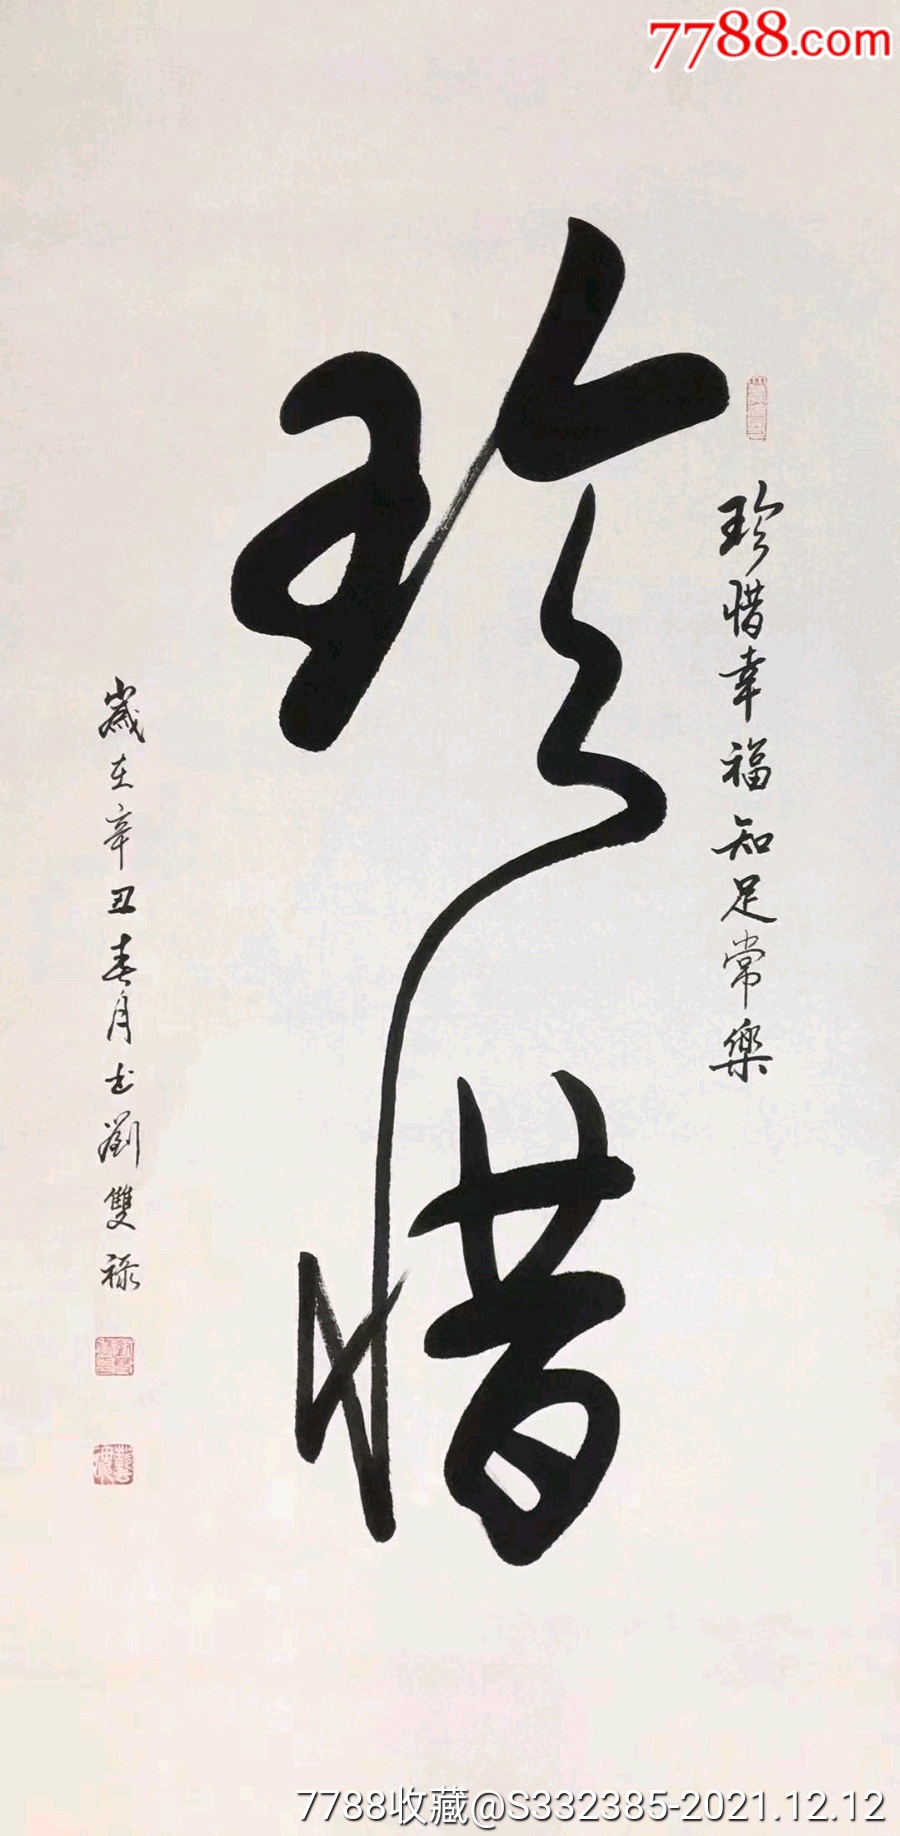 7788.com
珍惜
珍惜幸福知足常樂
歲在辛丑春月书劉雙祿
7788收藏@S332385-2021.12.12